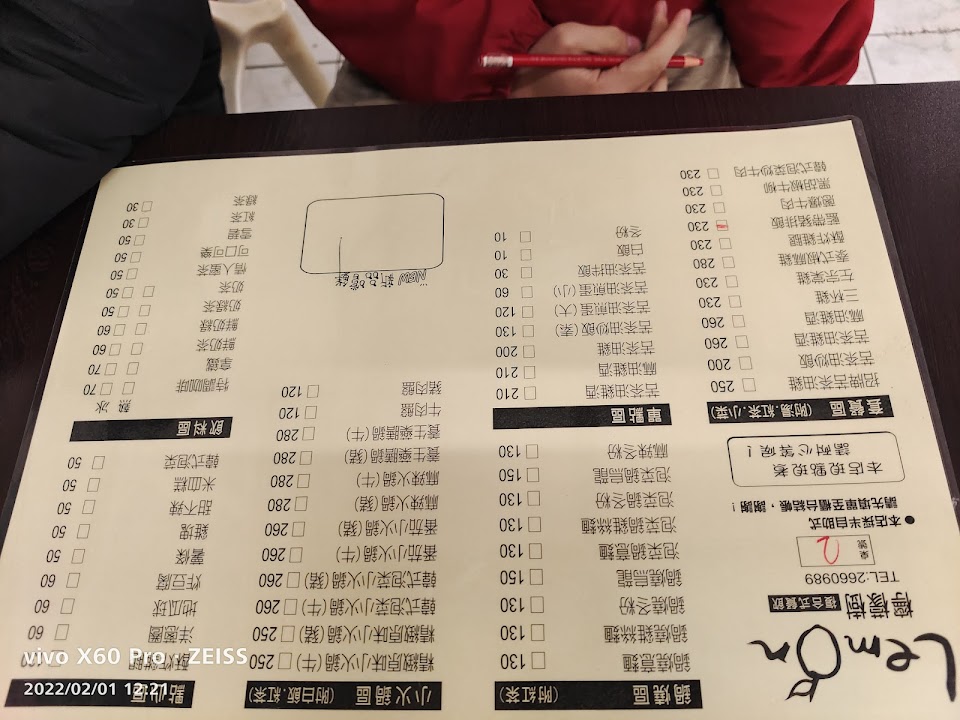 Lemon
檸檬樹 複合式餐飲
TEL:2660989
桌號 2
●本店採半自助式
請先填單至櫃台結帳，謝謝！
本店現點現煮
請耐心等候！
套餐區 (附湯.紅茶.小菜)
招牌苦茶油雞 □ 250
苦茶油炒飯 □ 200
苦茶油雞酒 □ 260
麻油雞酒 □ 260
三杯雞 □ 230
左宗棠雞 □ 230
泰式椒麻雞 □ 280
酥炸雞腿 □ 230
藍帶豬排飯 □ 230
蔥爆牛肉 □ 230
黑胡椒牛柳 □ 230
韓式泡菜炒牛肉 □ 230
鍋燒區 (附紅茶)
鍋燒意麵 □ 130
鍋燒雞絲麵 □ 130
鍋燒冬粉 □ 130
鍋燒烏龍 □ 150
泡菜鍋意麵 □ 130
泡菜鍋雞絲麵 □ 130
泡菜鍋冬粉 □ 130
泡菜鍋烏龍 □ 150
麻辣冬粉 □ 130
單點區
苦茶油雞酒 □ 210
麻油雞酒 □ 210
苦茶油雞 □ 200
苦茶油炒飯(素) □ 130
苦茶油煎蛋(大) □ 120
苦茶油煎蛋(小) □ 60
苦茶油拌飯 □ 30
白飯 □ 10
冬粉 □ 10
小火鍋區 (附白飯.紅茶)
精緻原味小火鍋(牛) □ 250
精緻原味小火鍋(豬) □ 250
韓式泡菜小火鍋(牛) □ 260
韓式泡菜小火鍋(豬) □ 260
番茄小火鍋(牛) □ 260
番茄小火鍋(豬) □ 260
麻辣火鍋(豬) □ 280
麻辣火鍋(牛) □ 280
養生藥膳鍋(豬) □ 280
養生藥膳鍋(牛) □ 280
牛肉盤 □ 120
豬肉盤 □ 120
NEW! 新品嚐鮮
點心區
洋蔥圈 □ 60
地瓜球 □ 60
炸豆腐 □ 60
薯條 □ 50
雞塊 □ 50
甜不辣 □ 50
米血糕 □ 50
韓式泡菜 □ 50
飲料區
熱 冰
特調咖啡 □ □ 70
拿鐵 □ □ 70
鮮奶茶 □ □ 60
鮮奶綠 □ □ 60
奶綠茶 □ □ 50
奶茶 □ □ 50
情人蜜茶 □ 50
可口可樂 □ 50
雪碧 □ 50
紅茶 □ 30
綠茶 □ 30
vivo X60 Pro · ZEISS
2022/02/01 12:21